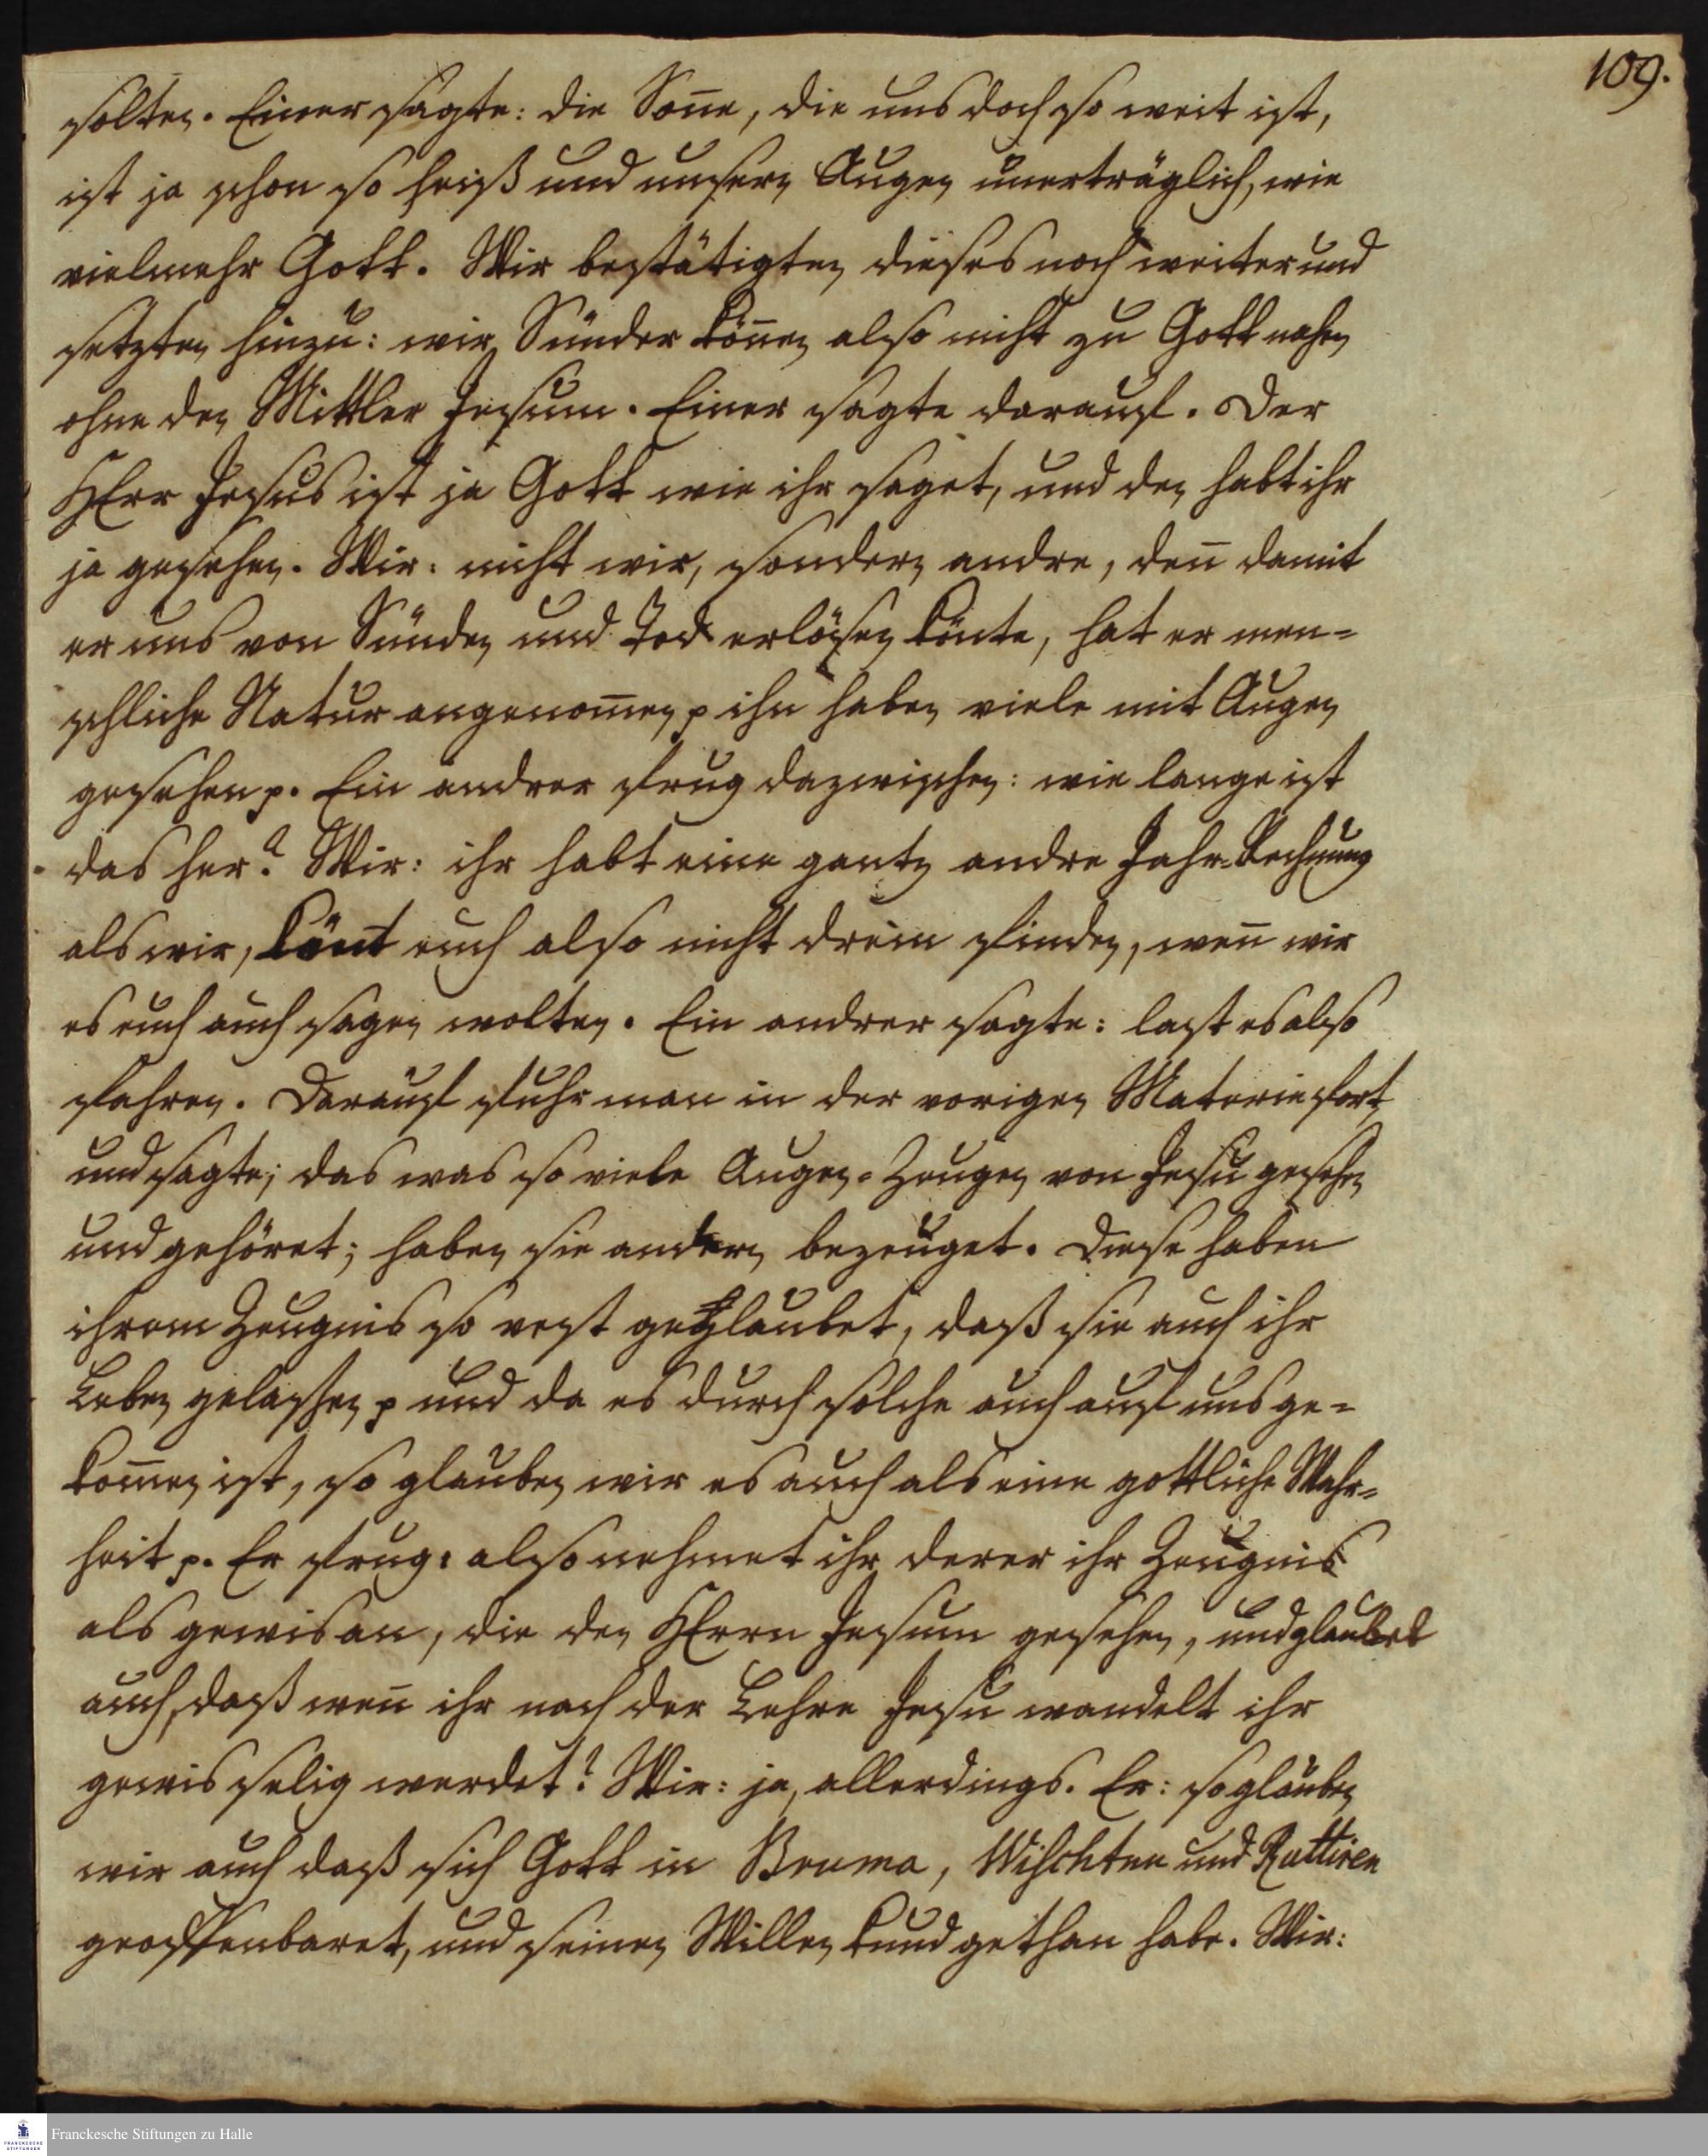 109.
solten. Einer sagte: die Soñe, die uns doch so weit ist,
ist ja schon so heiß und unsern Augen unerträglich, wie
vielmehr Gott. Wir bestätigten dieses noch weiter und
setzten hinzu: wir Sünder köñen also nicht zu Gott nahen
ohne den Mittler Jesum. Einer sagte darauf. Der
HErr Jesus ist ja Gott wie ihr saget, und den habt ihr
ja gesehen. Wir: nicht wir, sondern andre, deñ damit
er uns von Sünden und Tod erlösen köñte, hat er men=
schliche Natur angenom̃en, p ihn haben viele mit Augen
gesehen p. Ein andrer frug dazwischen: wie lange ist
das her? Wir: ihr habt eine gantz andre Jahr-Rechnung
als wir, köñt euch also nicht drein finden, weñ wir
es euch auch sagen wolten. Ein andrer sagte: last es also
fahren. Darauf fuhr man in der vorigen Materie fort
und sagte; das was so viele Augen-Zeugen von Jesu gesehen
und gehöret; haben sie andern bezeuget. Diese haben
ihrem Zeugnis so vest geglaubet, daß sie auch ihr
Leben gelassen p und da es durch solche auch auf uns ge=
kom̃en ist, so glauben wir es auch als eine gottliche Wahr=
heit p. Er frug: also nehmet ihr derer ihr Zeugnis
als gewis an, die den HErrn Jesum gesehen, und glaubet
auch, daß weñ ihr nach der Lehre Jesu wandelt ihr
gewis selig werdet? Wir: ja, allerdings. Er: so glauben
wir auch daß sich Gott in Bruma, Wischtnu und Ruttiren
geoffenbaret, und seinen Willen kund gethan habe. Wir:
Franckesche Stiftungen zu Halle
FRANCKESCHE
STIFTUNGEN